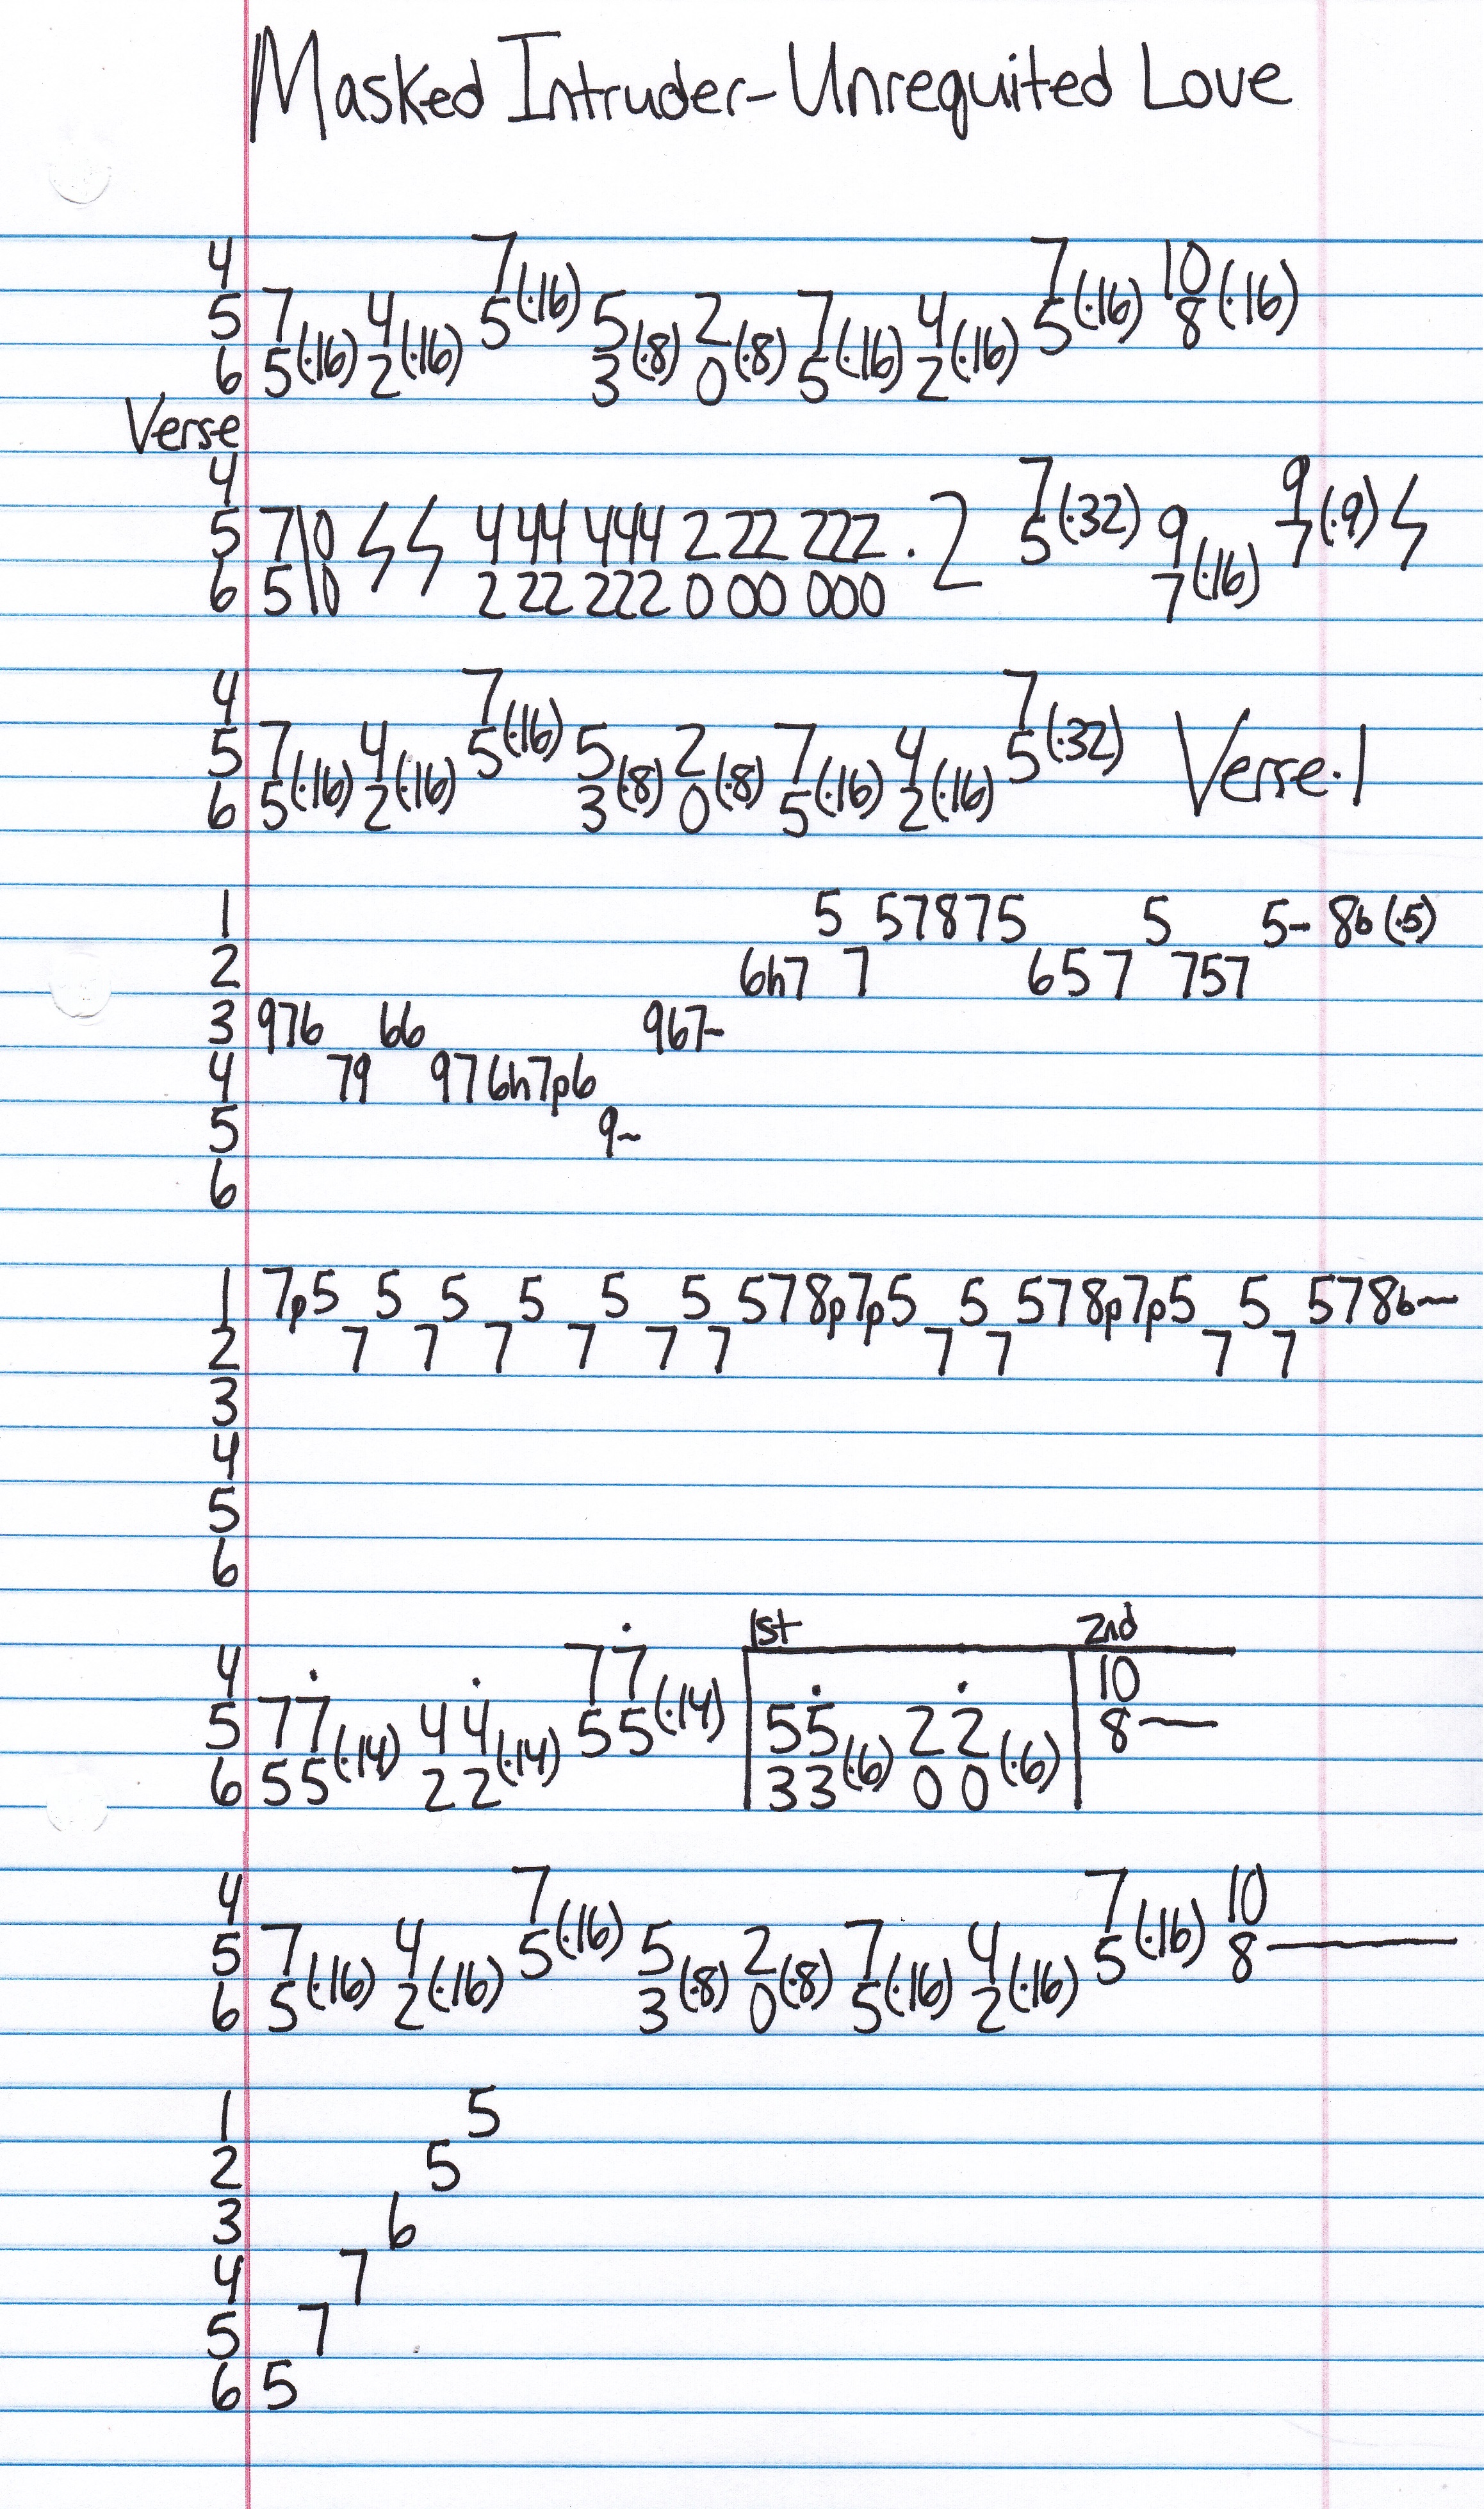 Masked Intruder-Unrequited Love
4 7(·16) 7(·16) 10(·16)
5 7 4 5 5 2 7 4 5 8
6 5(·16) 2(·16) 3(·8) 0(·8) 5(·16) 2(·16)
Verse
4 7 9
5 7\0 444 444 222 222 · 2 5(·32) 9 7(·9)
6 5\0 222 222 000 000 7(·16)
4 7 7
5 7 4 5(·16) 5 2 7 4 5(·32) Verse·1
6 5(·16) 2(·16) 3(·8) 0(·8) 5(·16) 2(·16)
1 5 57875 5 5- 8b(·5)
2 6h7 7 657 757
3 976 66 967~
4 79 976h7p6
5 9~
6
1 7p5 5 5 5 5 5 578p7p5 5 578p7p5 5 578b~
2 7 7 7 7 7 7 7 7 7 7
3
4
5
6
1st 2nd
4 77̇ 10
5 77̇ 44̇ 55(·14) 55̇ 22̇ 8—
6 55(·14) 22(·14) 33(·6) 00(·6)
4 7 7 10
5 7 4 5(·16) 5 2 7 4 5(·16) 8—
6 5(·16) 2(·16) 3(·8) 0(·8) 5(·16) 2(·16)
1 5
2 5
3 6
4 7
5 7
6 5